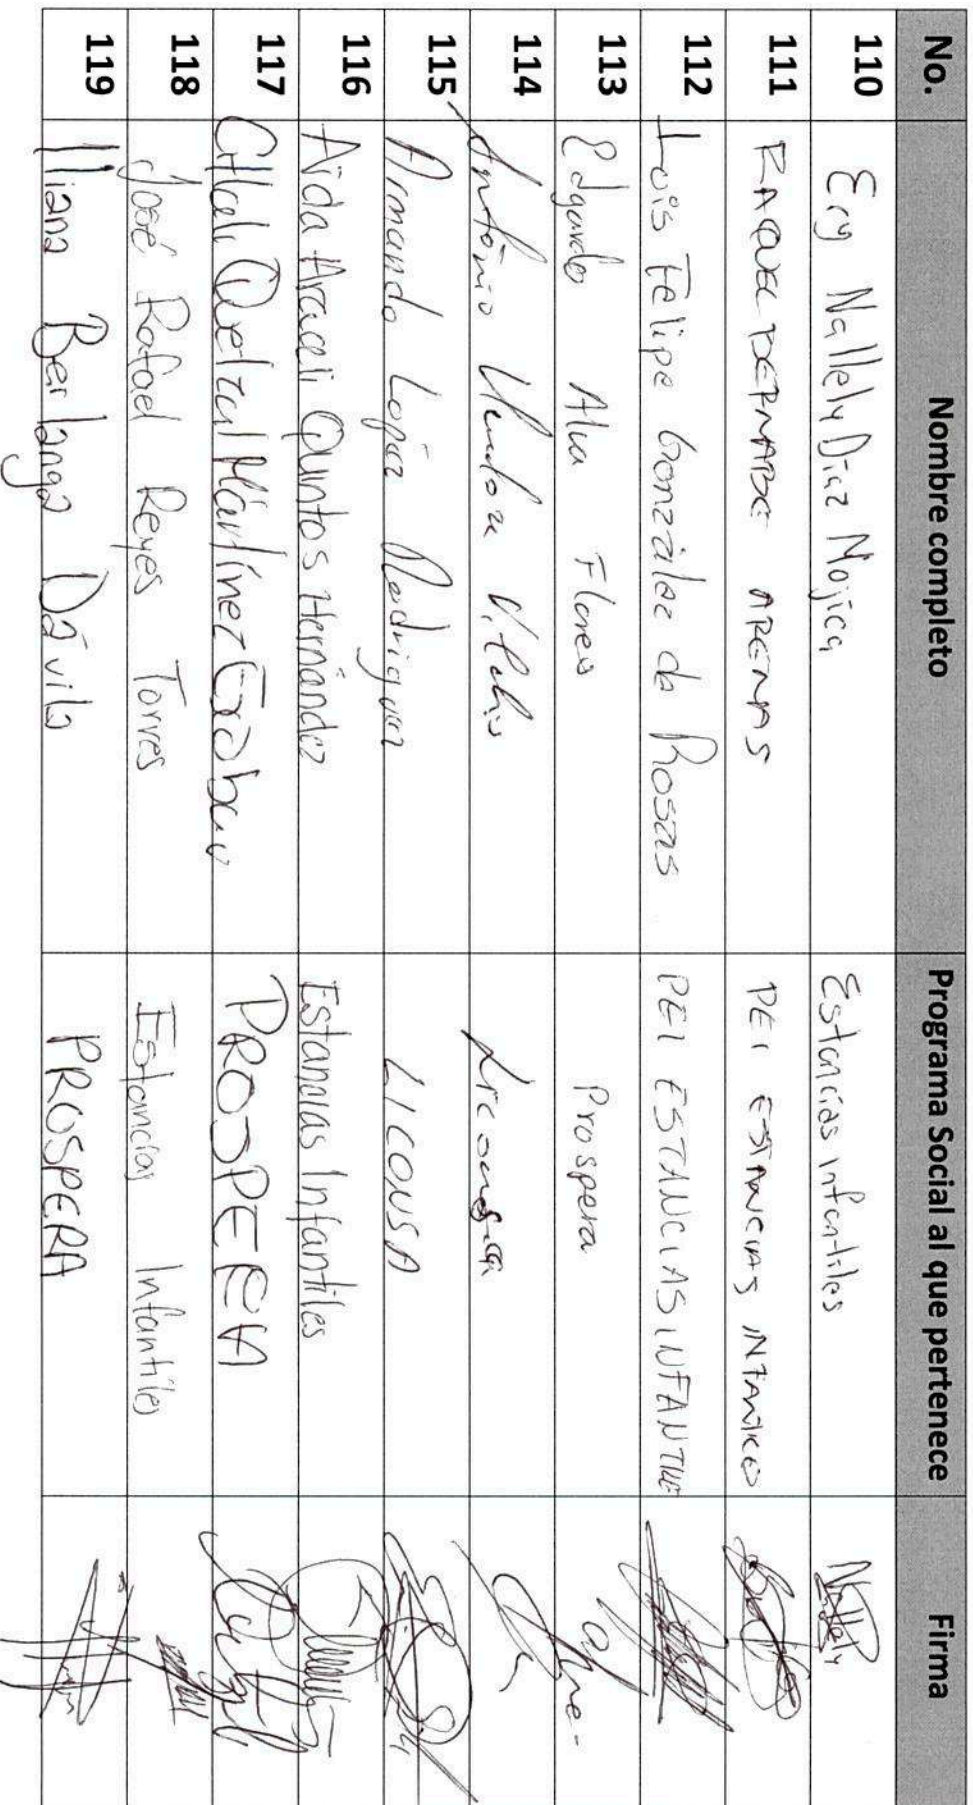 No. Nombre completo Programa Social al que pertenece Firma
110 Ery Nallely Diaz Mojica Estancias Infantiles Nallely
111 RAQUEL BERNABE ARENAS PEI ESTANCIAS INFANTILES
112 Luis Felipe González de Rosas PEI ESTANCIAS INFANTILE
113 Edgardo Alva Flores Prospera
114 Antonio Mendoza Liconsa
115 Armando López Rodriguez LICONSA
116 Aida Araceli Quintos Hernández Estancias Infantiles
117 Citlali Quetzal Martínez PROSPERA
118 José Rafael Reyes Torres Estancias Infantiles
119 Iliana Berlanga Dávila PROSPERA